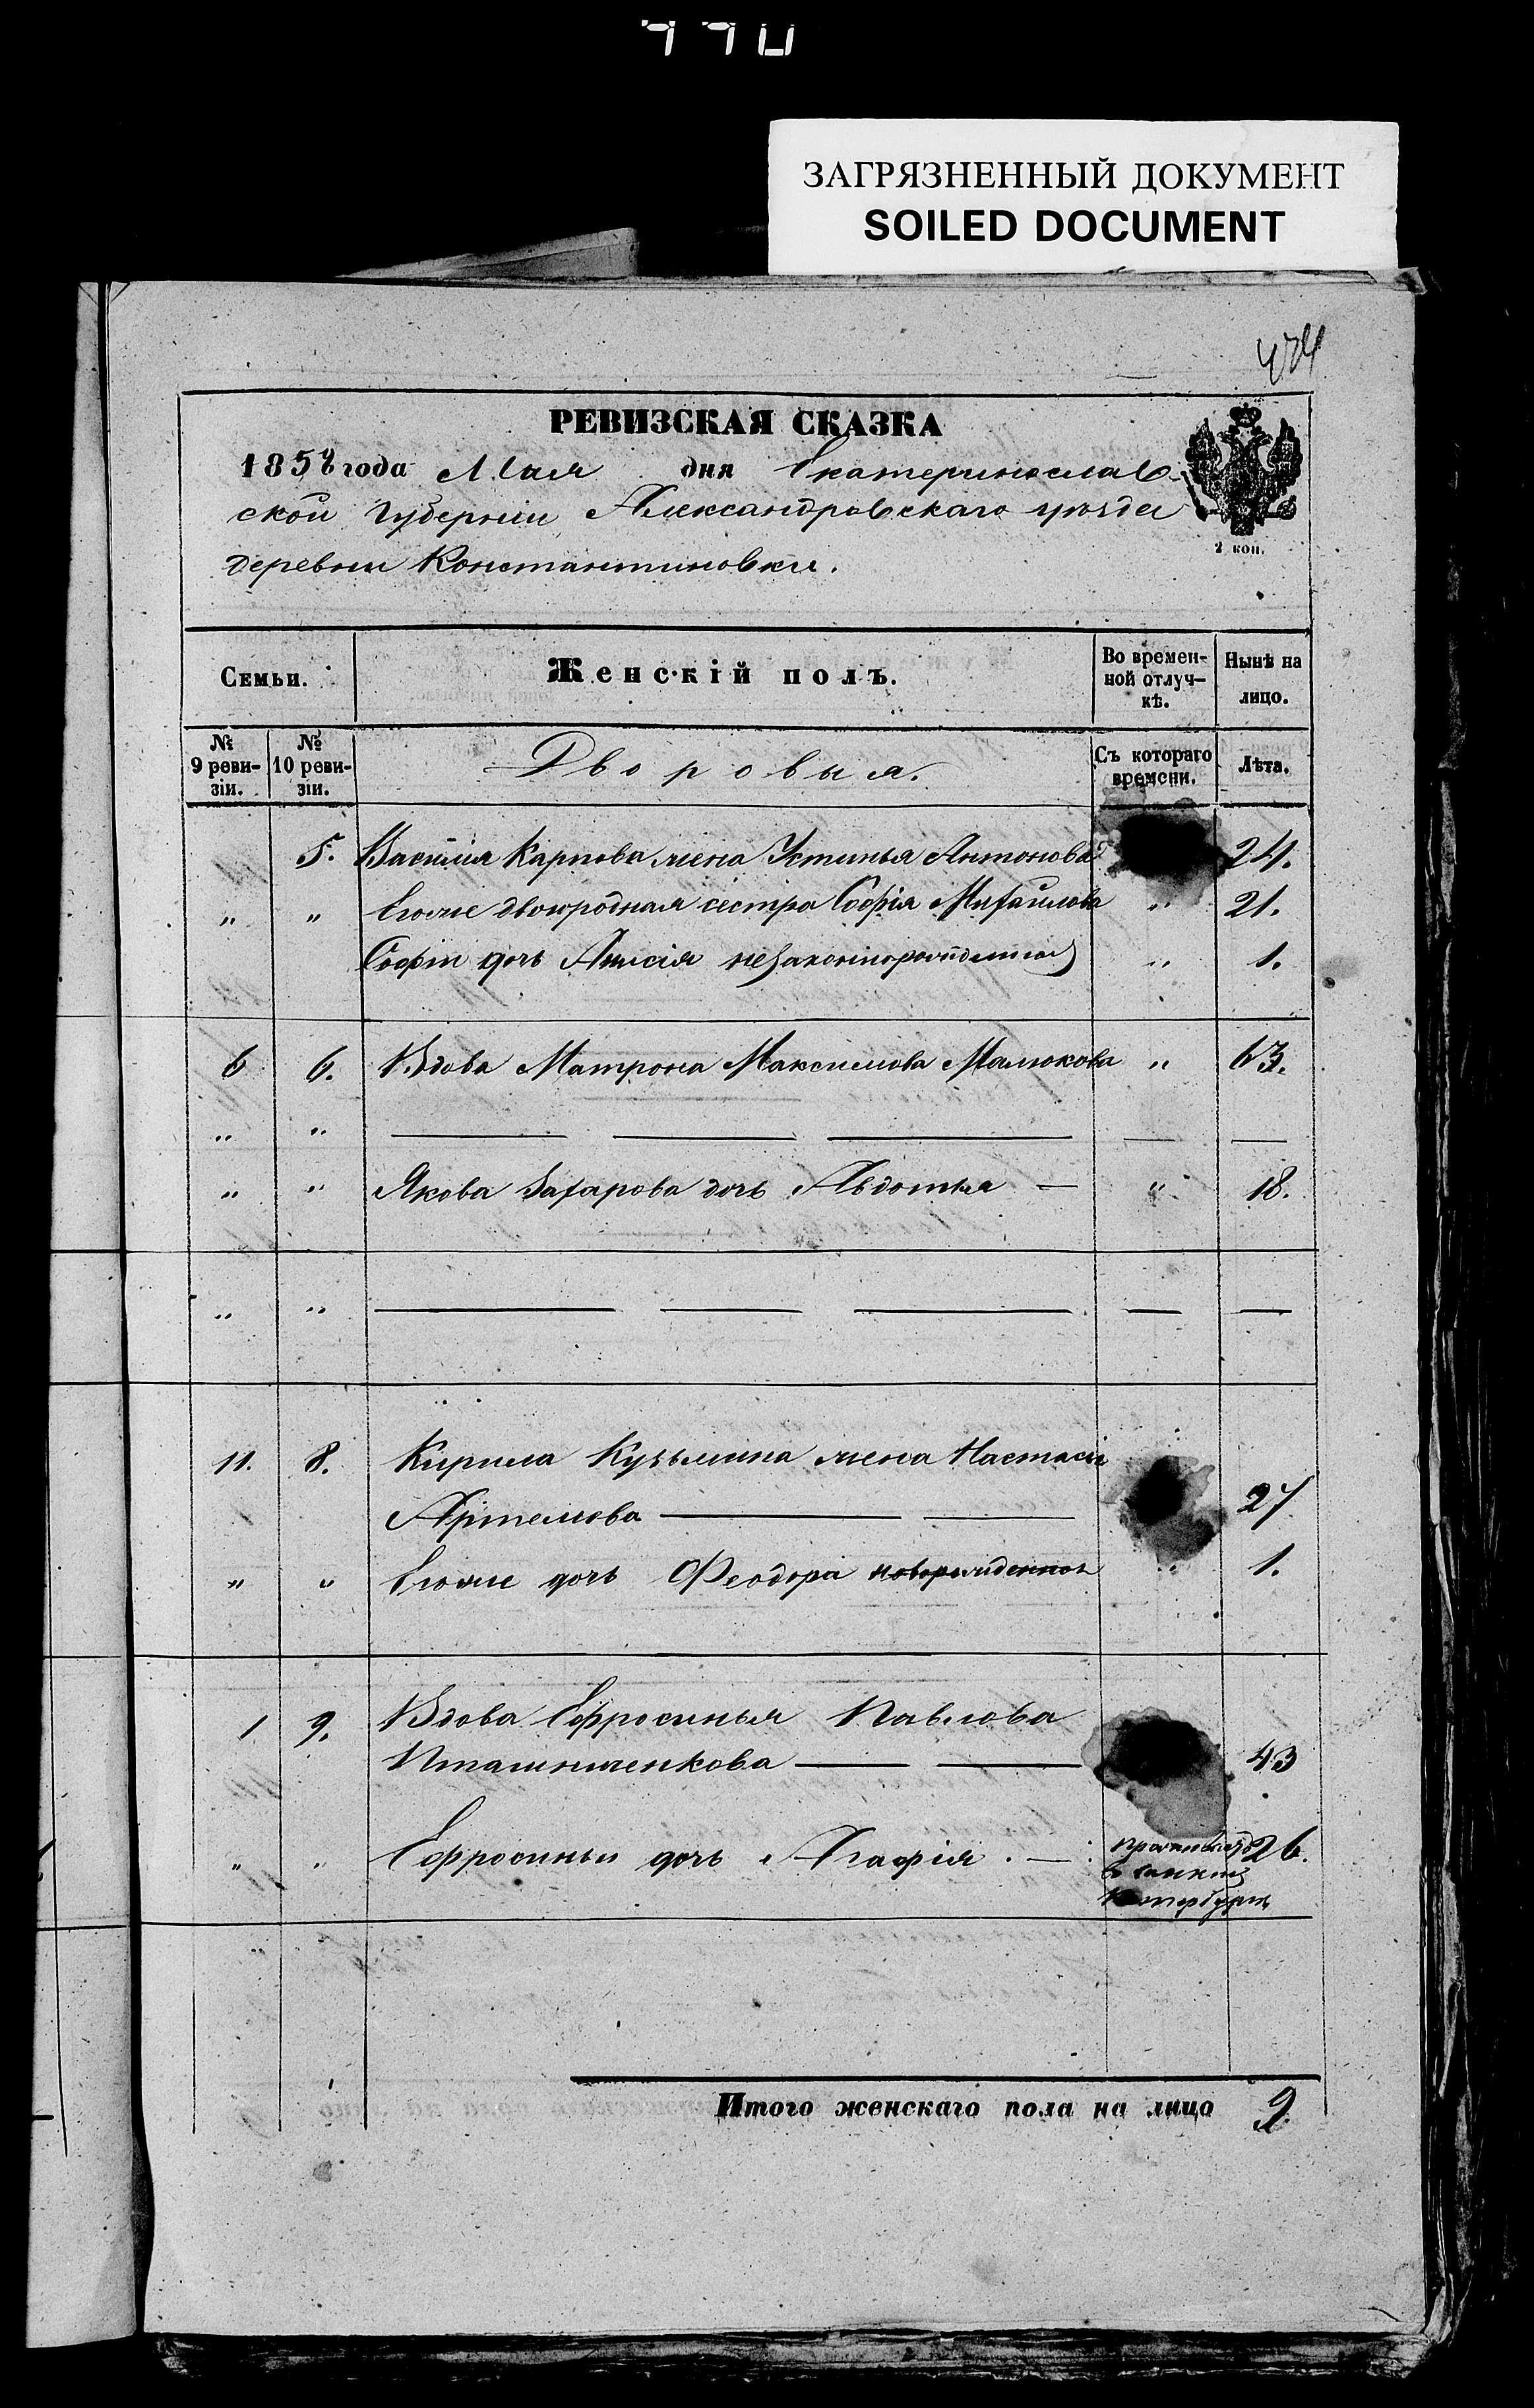 990
ЗАГРЯЗНЕННЫЙ ДОКУМЕНТ
SOILED DOCUMENT
РЕВИЗСКАЯ СКАЗКА
1858 года Мая дня Екатеринослав-
ской Губерніи Александровскаго уѣзда
деревни Константиновки.
2 коп.
Семьи.
Женскій полъ.
Во времен-
ной отлуч-
кѣ.
Нынѣ на
лицо.
№ 9 реви-
зіи.
№ 10 реви-
зіи.
Дворовыя.
Съ котораго
времени.
Лѣта.
5. Василія Карпова жена Устинья Антонова 24.
" " Егоже двоюродная сестра Софія Михайлова " 21.
Софіи дочь Анисія незаконнорожденная " 1.
6 6. Вдова Матрона Максимова Малюкова " 63.
" " — — — — —
" " Якова Захарова дочь Авдотья — " 18.
" " — — — — —
11. 8. Кирила Кузьмина жена Настасья
Артемова — — 27.
" " Егоже дочь Феодора новорожденная " 1.
1 9. Вдова Ефросинья Павлова
Пташниченкова — — 43
" " Ефросиньи дочь Агафія . — . 26.
в Санкт
Петербургѣ
"
Итого женскаго пола на лицо 9.